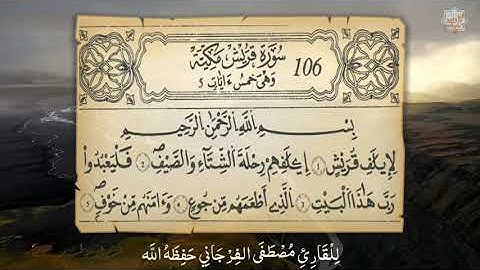 سُورَةُ قُرَيْشٍ مَكِّيَّةٌ
106
وَهْىَ خَمْسُ ءَايَاتٍ
بِسْمِ اِ۬للَّهِ اِ۬لرَّحْمَٰنِ اِ۬لرَّحِيمِ
لِإِيلَٰفِ قُرَيْشٍ ١ إِۦلَٰفِهِمْ رِحْلَةَ اَ۬لشِّتَآءِ وَالصَّيْفِ ٢ فَلْيَعْبُدُواْ
رَبَّ هَٰذَا اَ۬لْبَيْتِ ٣ اِ۬لَّذِےٓ أَطْعَمَهُم مِّن جُوعٍ ٤ وَءَامَنَهُم مِّنْ خَوْفٍ ٥
لِلْقَارِئِ مُصْطَفَى الفِرْجَانِي حَفِظَهُ اللَّه